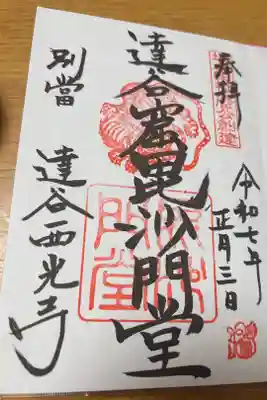 奉拝
令和七年
正月三日
達谷窟毘沙門堂
別當
達谷西光寺